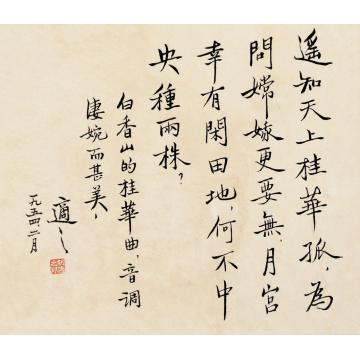 遥知天上桂華孤，為
問嫦娥更要無，月宮
幸有閑田地，何不中
央種兩株？
白香山的桂華曲，音调
淒婉而甚美，
適之
一九五四，二月